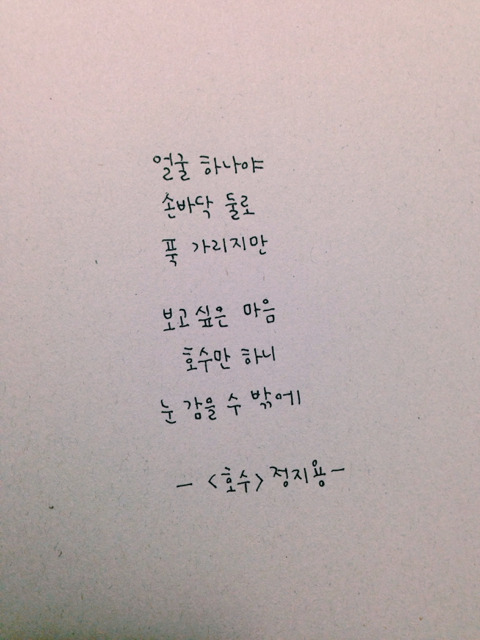 얼굴 하나야
손바닥 둘로
푹 가리지만
보고싶은 마음
호수만 하니
눈 감을 수 밖에
- <호수> 정지용 -